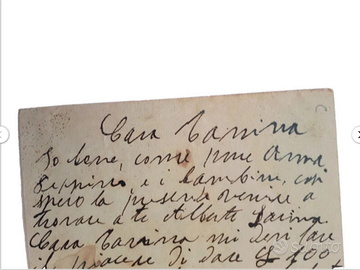 Cara Tannina
Io bene, come pure Anna
Peppino, e i bambini, così
spero la presente venire a
trovare a te Alberto Jacina.
Cara Tannina mi devi fare
il piacere di dare £ 100